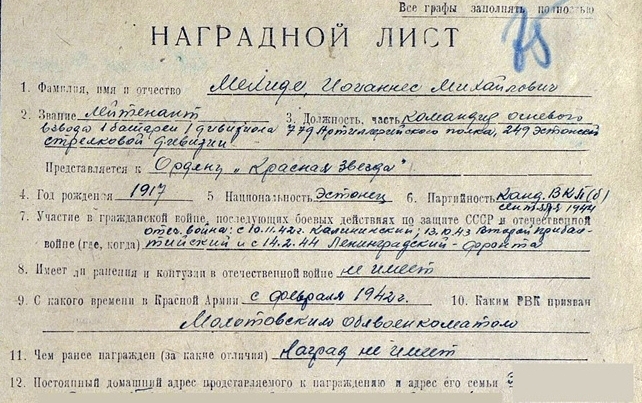 Все графы заполнять полностью
75
НАГРАДНОЙ ЛИСТ
1. Фамилия, имя и отчество Мехиде, Иоганнес Михайлович
2. Звание лейтенант 3. Должность, часть командир огневого
взвода 1 батареи 1 дивизиона 779 Артиллерийского полка, 249 Эстонской
стрелковой дивизии
Представляется к Ордену „Красная Звезда"
4. Год рождения 1917 5 Национальность Эстонец 6. Партийность Канд. ВКП(б)
сентябрь 1944
7. Участие в гражданской войне, последующих боевых действиях по защите СССР и отечественной
отеч. война: с 10.11.42г. Калининский; 13.10.43 Второй Прибал-
войне (где, когда) тийский и с 14.2.44 Ленинградский - фронта
8. Имеет ли ранения и контузии в отечественной войне не имеет
9. С какого времени в Красной Армии с февраля 1942г. 10. Каким РВК призван
Молотовским облвоенкоматом
11. Чем ранее награжден (за какие отличия) Наград не имеет
12. Постоянный домашний адрес представляемого к награждению и адрес его семьи